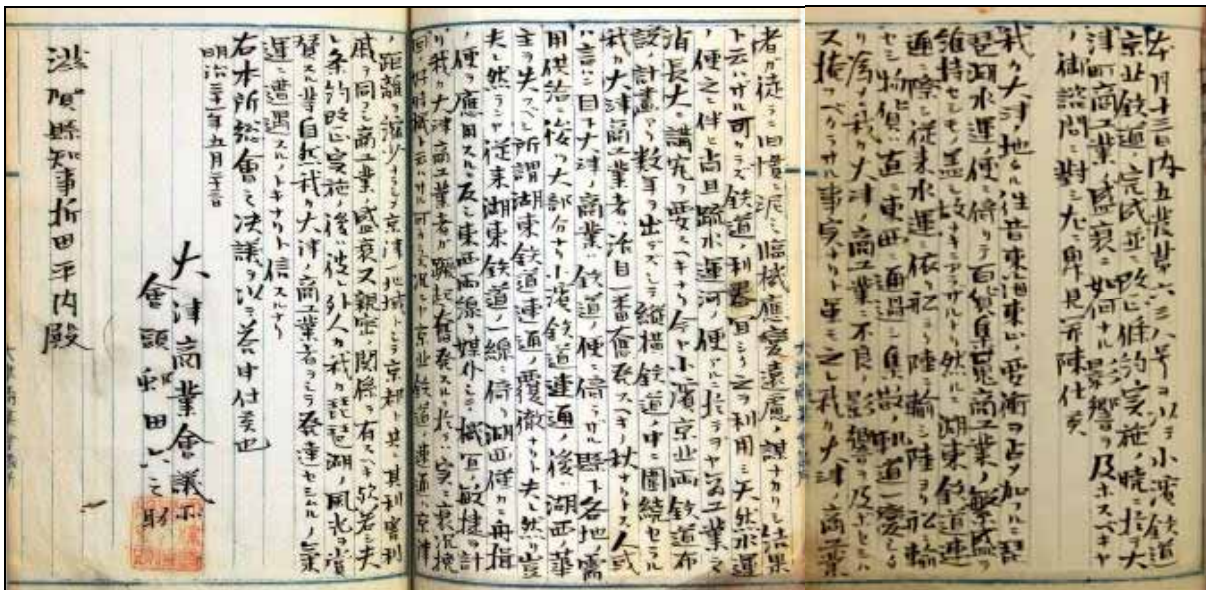 本月十三日内五農第六三八号ヲ以テ小濱鉄道
京北鉄道ノ完成並ニ改正條約実施ノ暁ニ於テ大
津町商工業ノ盛衰ニ如何ナル影響ヲ及ホスヘキヤ
ノ御諮問ニ對シ左ニ卑見開陳仕候
我カ大津ノ地タル往昔東海東山ノ要衝ヲ占メ加フルニ琵
琶湖水運ノ便ヲ得テ百貨集嵬商工業ノ繁盛ヲ
維持セシモノ蓋シ故ナキニアラサルナリ然ルニ湖東鉄道連
通ニ際シ従来水運ニ依リ船ヨリ陸ニ輸シ陸ヨリ船ニ輸
セシ物貨ハ直ニ東西ニ通過シ集散ノ軌道ヲ変シ
為ニ我カ大津ノ商工業ニ不良ノ影響ヲ及ホセシハ
掩フヘカラサル事実ナリト虽モ之レ我カ大津ノ商工業
者カ徒ラニ旧慣ニ泥ミ臨機應変遠慮ノ謀ナカリシ結果
ト云ハサル可カラズ鉄道ノ利器目シテ之ヲ利用シ天然水運
ノ便之ニ伴ヒ尚且疏水運河ノ便アルニ於テヲヤ工業ノ
消長大ニ講究ヲ要スヘキナリ今ヤ小濱京北両鉄道布
設ノ計畫アリ数年ヲ出デズシテ縦横鉄道ノ中ニ圍繞セラル
我カ大津商工業者ハ活目一番奮発スヘキノ秋ナリトス人或
ハ言ハン目下大津ノ商業ハ鉄道ノ便ヲ得ザル縣下各地ノ需
用供給ニ係ル大部分ナリ小濱鉄道連通ノ後ハ湖西ノ華
主ヲ失スヘシ所謂湖東鉄道連通ノ覆轍ナリト夫レ然リ豈
夫レ然ランヤ従来湖東鉄道ノ一線ニ得ツ湖西僅カニ舟揖
ノ便ヲ應用スルニ反シ東西両線ノ媒介シテ機宜ノ敏捷ヲ計
リ我カ大津商工業者カ蹶起奮発スルニ於テハ実ニ衰沈挽
回ノ好時機ト云ハサル可カラス況ンヤ京北鉄道ノ連通ハ京津
ノ距離ヲ減少セシメ京津一地域トシテ京都ト共ニ其利害
戚ヲ同フシ商工業ノ盛衰又親密ノ関係ヲ有スヘキ歟若シ夫
レ条約改正実施ノ後ハ外人カ我カ琵琶湖ノ風光ヲ賞
替スル等自然我カ大津ノ商工業者ヲシテ発達セシムルノ気
運ニ遭遇スルノトキナリト信スルナリ
右本所総會ノ決議ヲ以テ答申仕候也
明治三十一年五月二十三日
大津商業會議所
會頭 村田六之助
滋賀縣知事折田平内殿